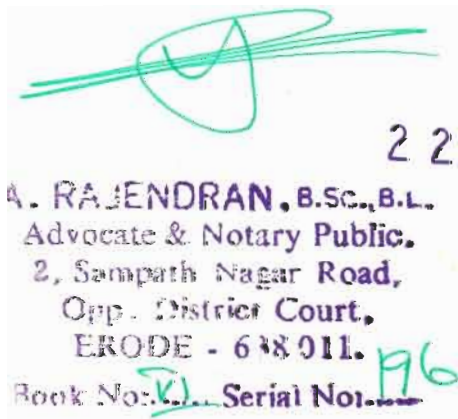 2 2
A. RAJENDRAN, B.Sc.,B.L.
Advocate & Notary Public.
2, Sampath Nagar Road,
Opp. District Court,
ERODE - 638 011.
Book No: VI.... Serial No:.196